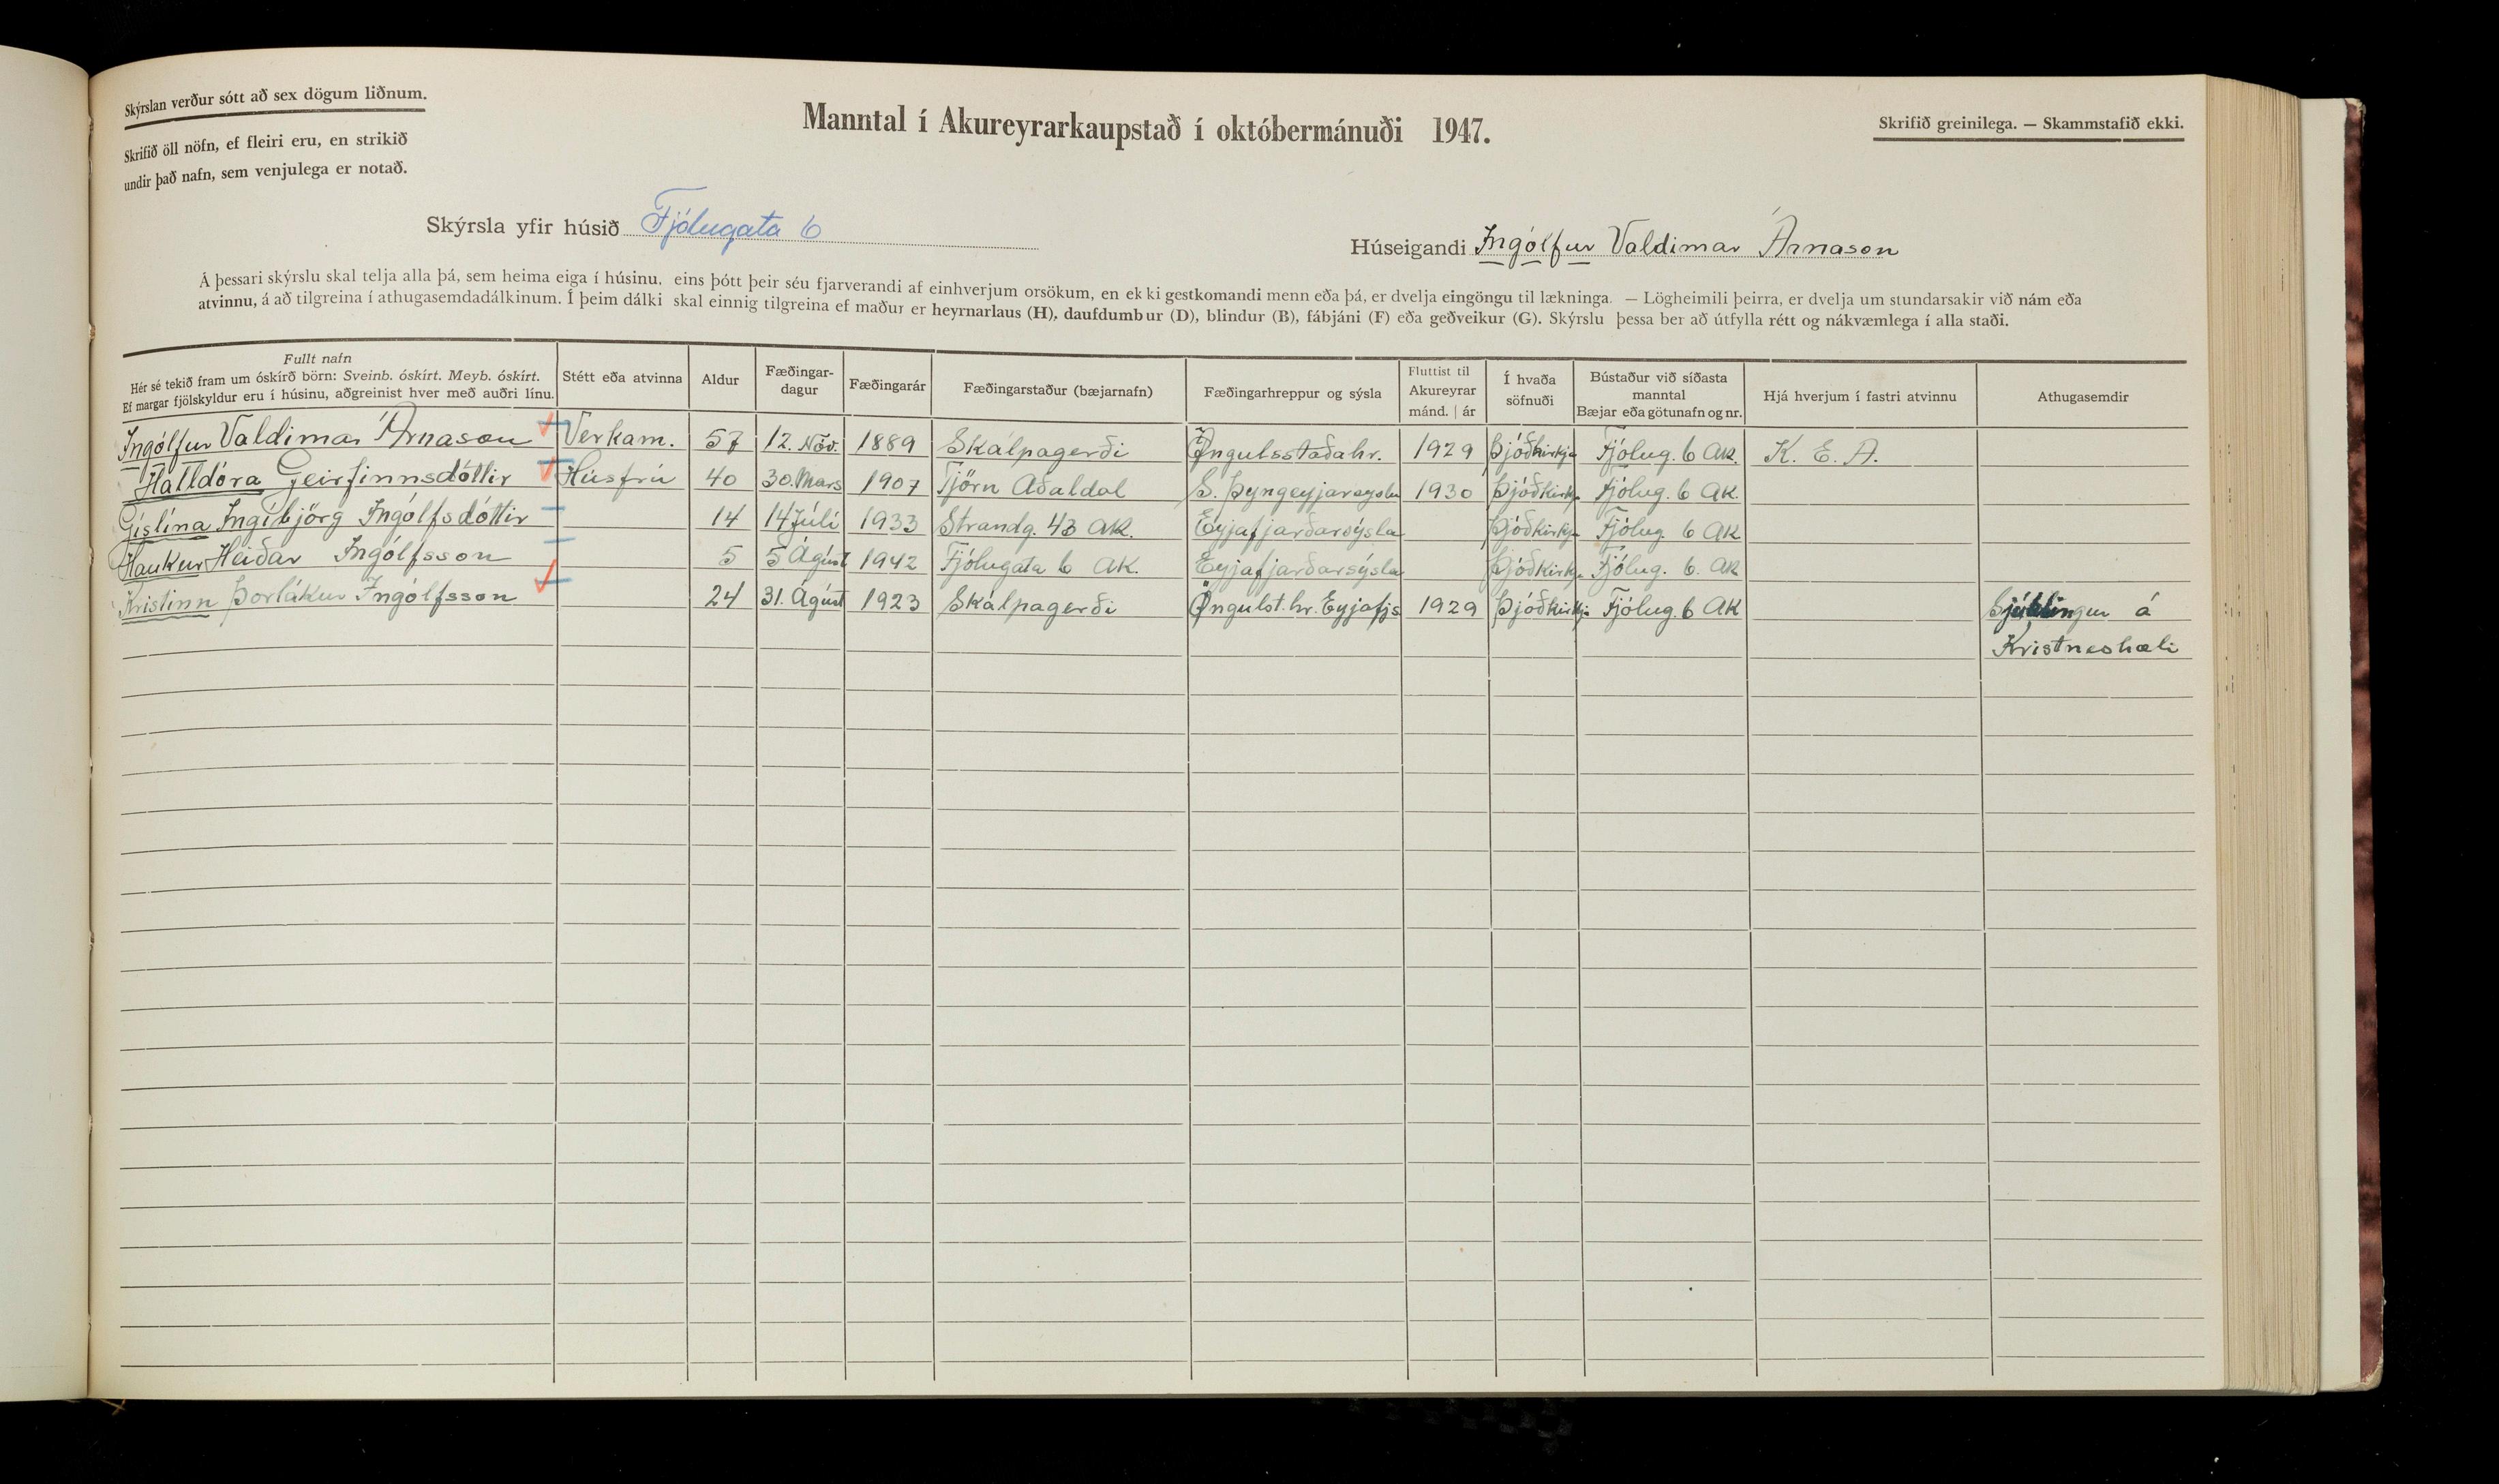 Skýrslan verður sótt að sex dögum liðnum.
Skrifið öll nöfn, ef fleiri eru, en strikið
undir það nafn, sem venjulega er notað.
Manntal í Akureyrarkaupstað í októbermánuði 1947.
Skrifið greinilega. — Skammstafið ekki.
Skýrsla yfir húsið Fjólugata 6
Húseigandi Ingólfur Valdimar Árnason
Á þessari skýrslu skal telja alla þá, sem heima eiga í húsinu, eins þótt þeir séu fjarverandi af einhverjum orsökum, en ekki gestkomandi menn eða þá, er dvelja eingöngu til lækninga. — Lögheimili þeirra, er dvelja um stundarsakir við nám eða
atvinnu, á að tilgreina í athugasemdadálkinum. Í þeim dálki skal einnig tilgreina ef maður er heyrnarlaus (H), daufdumbur (D), blindur (B), fábjáni (F) eða geðveikur (G). Skýrslu þessa ber að útfylla rétt og nákvæmlega í alla staði.
Fullt nafn
Hér sé tekið fram um óskírð börn: Sveinb. óskírt. Meyb. óskírt.
Ef margar fjölskyldur eru í húsinu, aðgreinist hver með auðri línu.
Stétt eða atvinna
Aldur
Fæðingar-
dagur
Fæðingarár
Fæðingarstaður (bæjarnafn)
Fæðingarhreppur og sýsla
Fluttist til
Akureyrar
mánd. | ár
Í hvaða
söfnuði
Bústaður við síðasta
manntal
Bæjar eða götunafn og nr.
Hjá hverjum í fastri atvinnu
Athugasemdir
Ingólfur Valdimar Árnason Verkam. 57 12. Nóv. 1889 Skálpagerði Öngulsstaðahr. 1929 Þjóðkirkja Fjólug. 6 AK. K. E. A.
Halldóra Geirfinnsdóttir Húsfrú 40 30. Mars 1907 Tjörn Aðaldal S. Þyngeyjarsýslu 1930 Þjóðkirkja Fjólug. 6 AK.
Gíslína Ingibjörg Ingólfsdóttir 14 14 Júlí 1933 Strandg. 43 AK. Eyjafjarðarsýsla Þjóðkirkja Fjólug. 6 AK
Haukur Heiðar Ingólfsson 5 5 Ágúst 1942 Fjólugata 6 AK. Eyjafjarðarsýsla Þjóðkirkja Fjólug. 6. AK
Kristinn Þorlákur Ingólfsson 24 31. Ágúst 1923 Skálpagerði Öngulst. hr. Eyjafjs 1929 Þjóðkirkja Fjólug. 6 AK Sjúklingur á
Kristneshæli